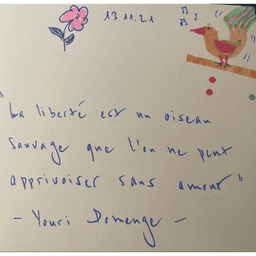 13.11.21
"La liberté est un oiseau
sauvage que l'on ne peut
apprivoiser sans amour"
- Youri Domenge -